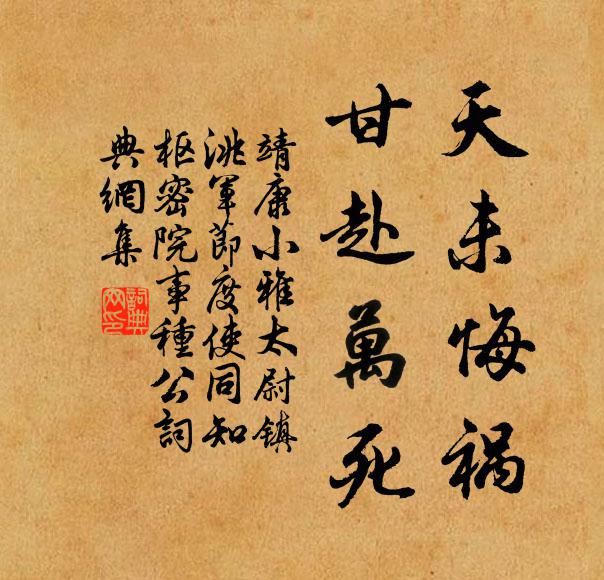 天未悔祸
甘赴萬死
靖康小雅太尉镇
洮軍節度使同知
枢密院事種公詞
典網集
詞典
网印